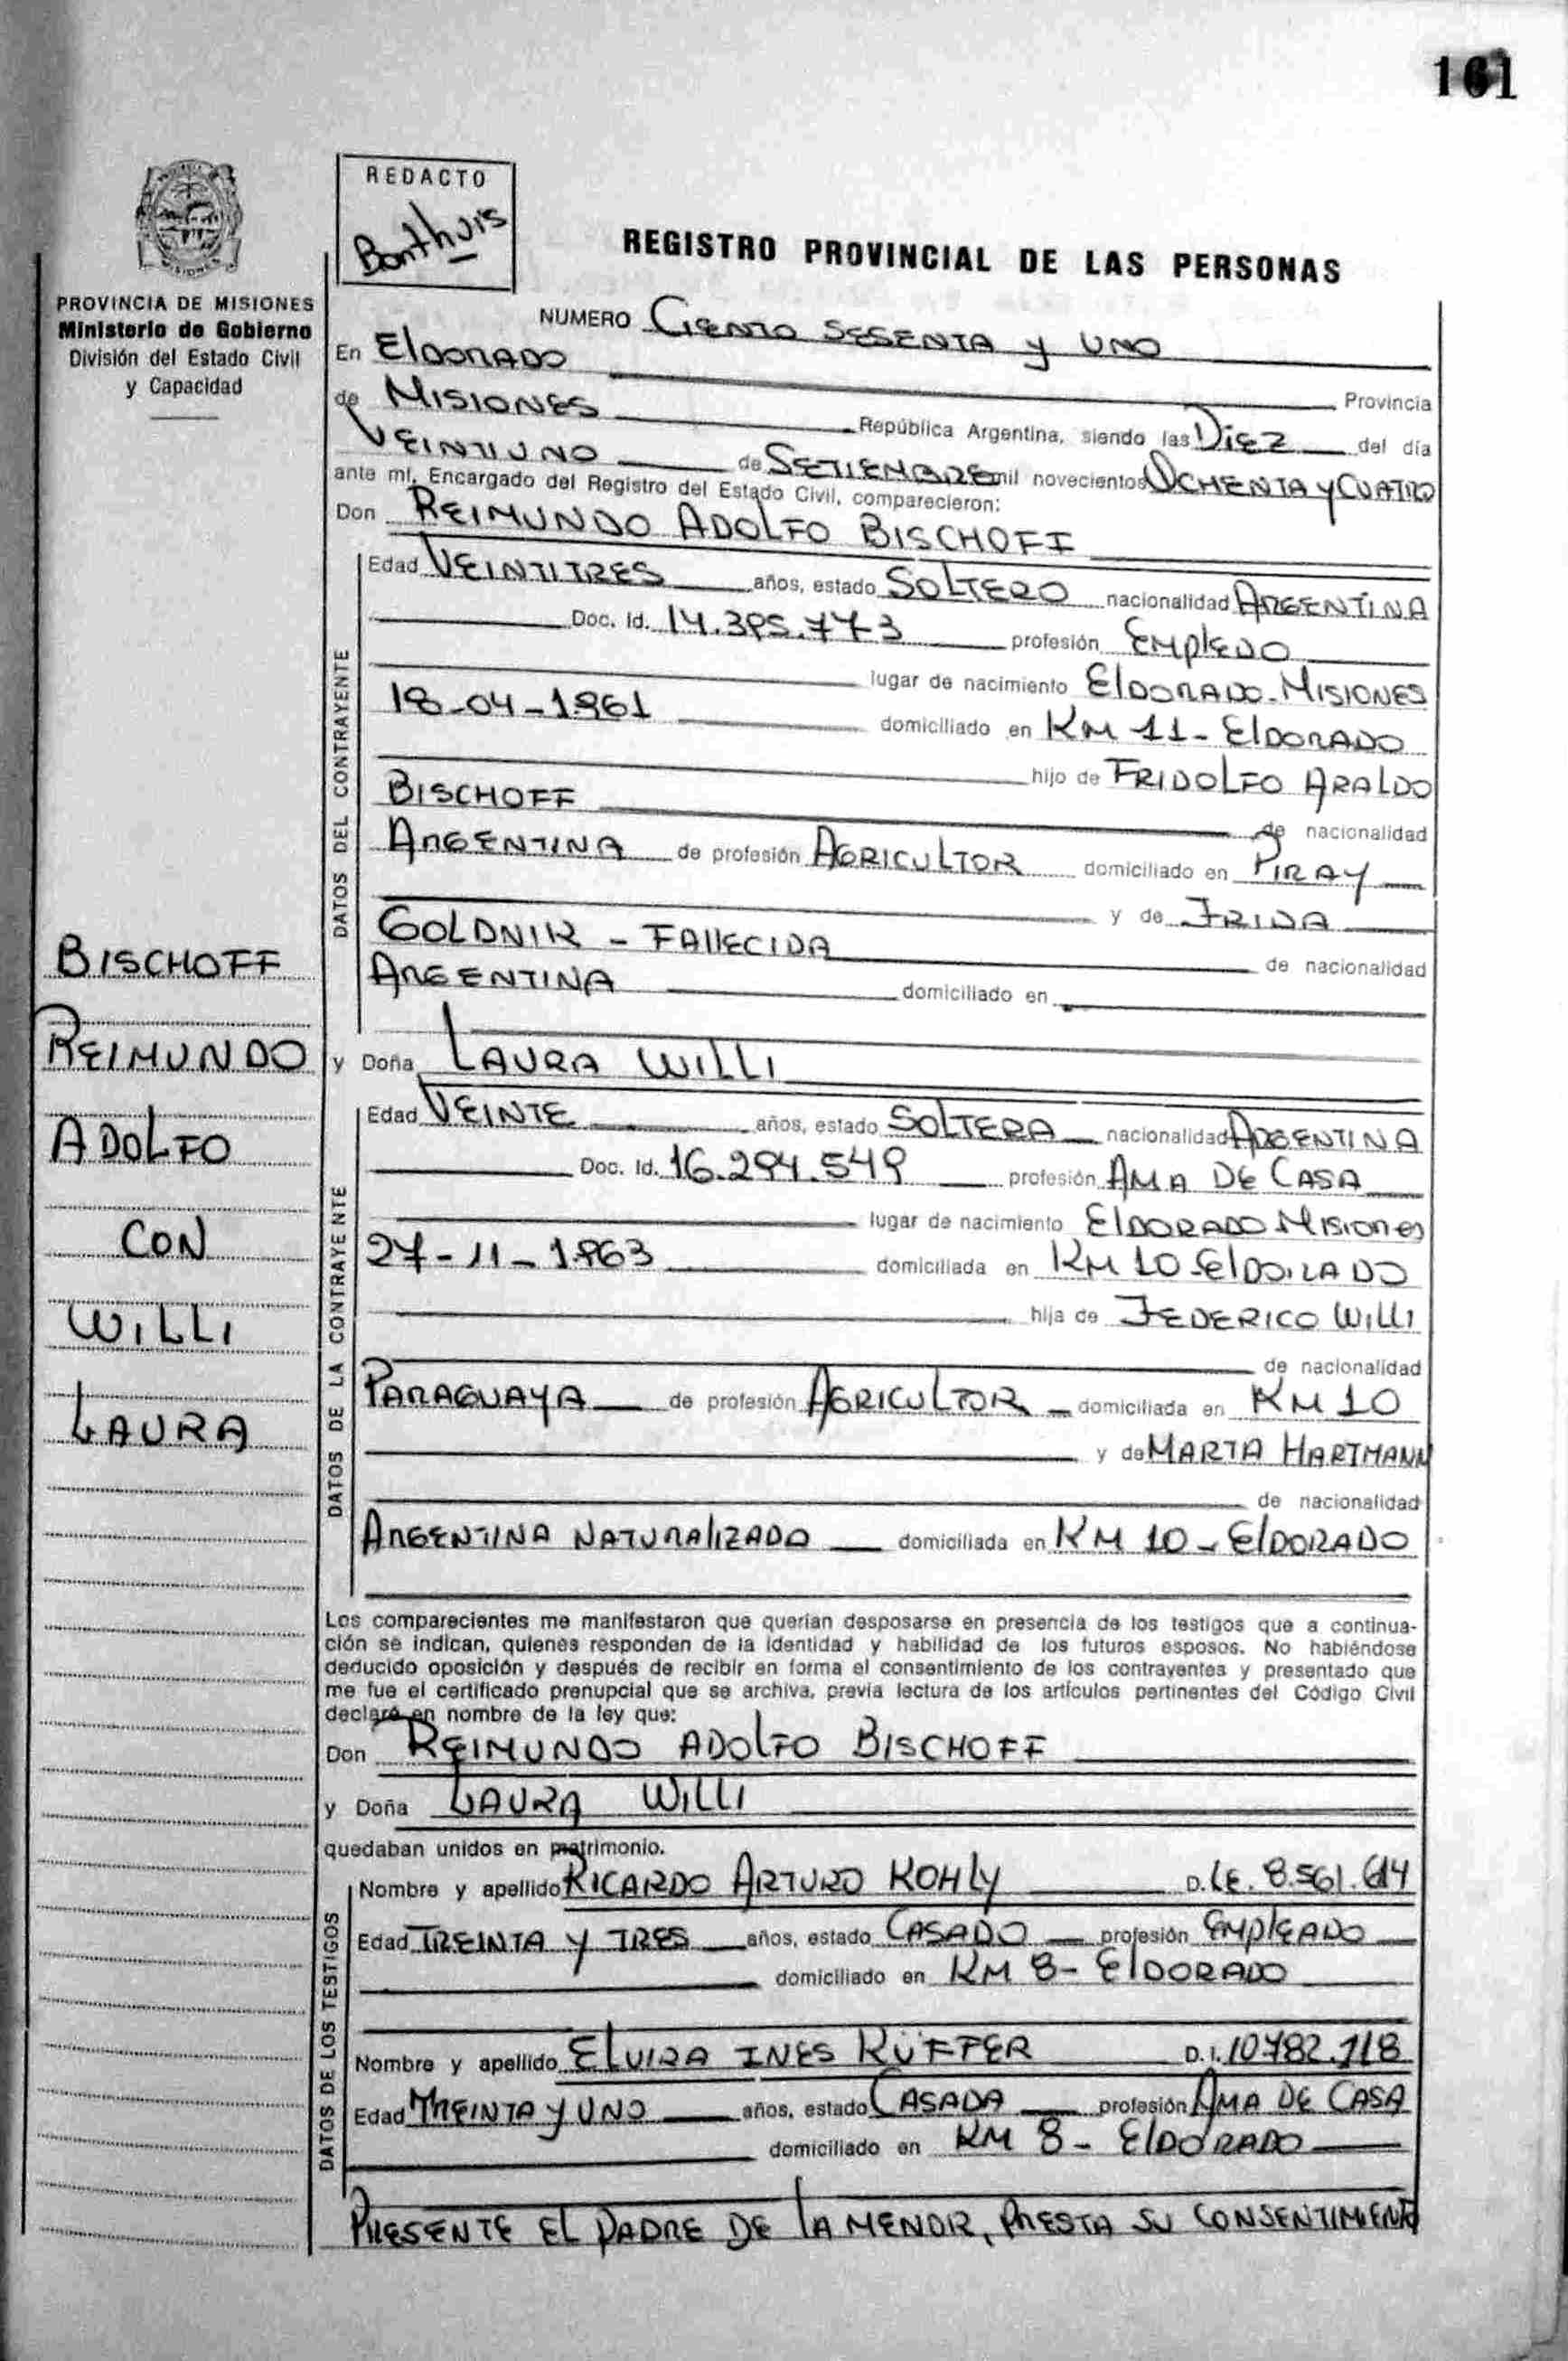 161
MISIONES
PROVINCIA DE MISIONES
Ministerio de Gobierno
División del Estado Civil
y Capacidad
BISCHOFF
REIMUNDO
ADOLFO
CON
WILLI
LAURA
REDACTO
Bonthuis
REGISTRO PROVINCIAL DE LAS PERSONAS
NUMERO CIENTO SESENTA y UNO
En ElDORADO
Provincia
de MISIONES República Argentina, siendo las DIEZ del día
VEINTIUNO de SETIEMBRE mil novecientos OCHENTA y CUATRO
ante mí, Encargado del Registro del Estado Civil, comparecieron:
Don REIMUNDO ADOLFO BISCHOFF
DATOS DEL CONTRAYENTE
Edad VEINTITRES años, estado SOLTERO nacionalidad ARGENTINA
Doc. Id. 14.395.773 profesión EMPlEDO
lugar de nacimiento ElDORADO-MISIONES
18-04-1961 domiciliado en KM 11- ElDORADO
hijo de FRIDOLFO ARALDO
BISCHOFF de nacionalidad
ARGENTINA de profesión AGRICULTOR domiciliado en PIRAY
y de FRIDA
GOLDNIK - FAllECIDA de nacionalidad
ARGENTINA domiciliado en
y Doña LAURA WILLI
DATOS DE LA CONTRAYENTE
Edad VEINTE años, estado SOLTERA nacionalidad ARGENTINA
Doc. Id. 16.294.549 profesión AMA DE CASA
lugar de nacimiento ElDORADO MISIONES
27-11-1963 domiciliada en KM 10 ElDORADO
hija de FEDERICO WILLI
de nacionalidad
PARAGUAYA de profesión AGRICULTOR domiciliada en KM 10
y de MARTA HARTMANN
de nacionalidad
ARGENTINA NATURAlIZADA domiciliada en KM 10 - ElDORADO
Los comparecientes me manifestaron que querían desposarse en presencia de los testigos que a continua-
ción se indican, quienes responden de la identidad y habilidad de los futuros esposos. No habiéndose
deducido oposición y después de recibir en forma el consentimiento de los contrayentes y presentado que
me fue el certificado prenupcial que se archiva, previa lectura de los artículos pertinentes del Código Civil
declaro en nombre de la ley que:
Don REIMUNDO ADOLFO BISCHOFF
y Doña LAURA WILLI
quedaban unidos en matrimonio.
DATOS DE LOS TESTIGOS
Nombre y apellido RICARDO ARTURO KOHLY D. LE. 8.561.614
Edad TREINTA Y TRES años, estado CASADO profesión EMPlEADO
domiciliado en KM 8- ElDORADO
Nombre y apellido ELVIRA INES RÜFFER D.I. 10.782.118
Edad TREINTA y UNO años, estado CASADA profesión AMA DE CASA
domiciliado en KM 8- ElDORADO
PRESENTE EL PADRE DE LA MENOR, PRESTA SU CONSENTIMIENTO